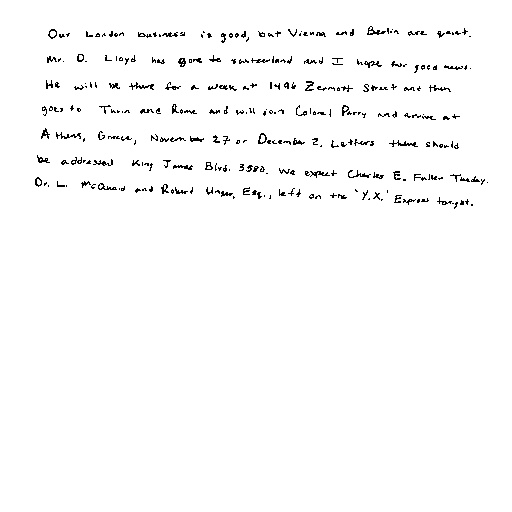 Our London business is good, but Vienna and Berlin are quiet.
Mr. D. Lloyd has gone to switzerland and I hope for good news.
He will be there for a week at 1496 Zermott Street and then
goes to Turin and Rome and will join Colonel Parry and arrive at
Athens, Greece, November 27 or December 2. Letters there should
be addressed King James Blvd. 3580. We expect Charles E. Fuller Tuesday.
Dr. L. McQuaid and Robert Unger, Esq., left on the 'Y.X.' Express tonight.